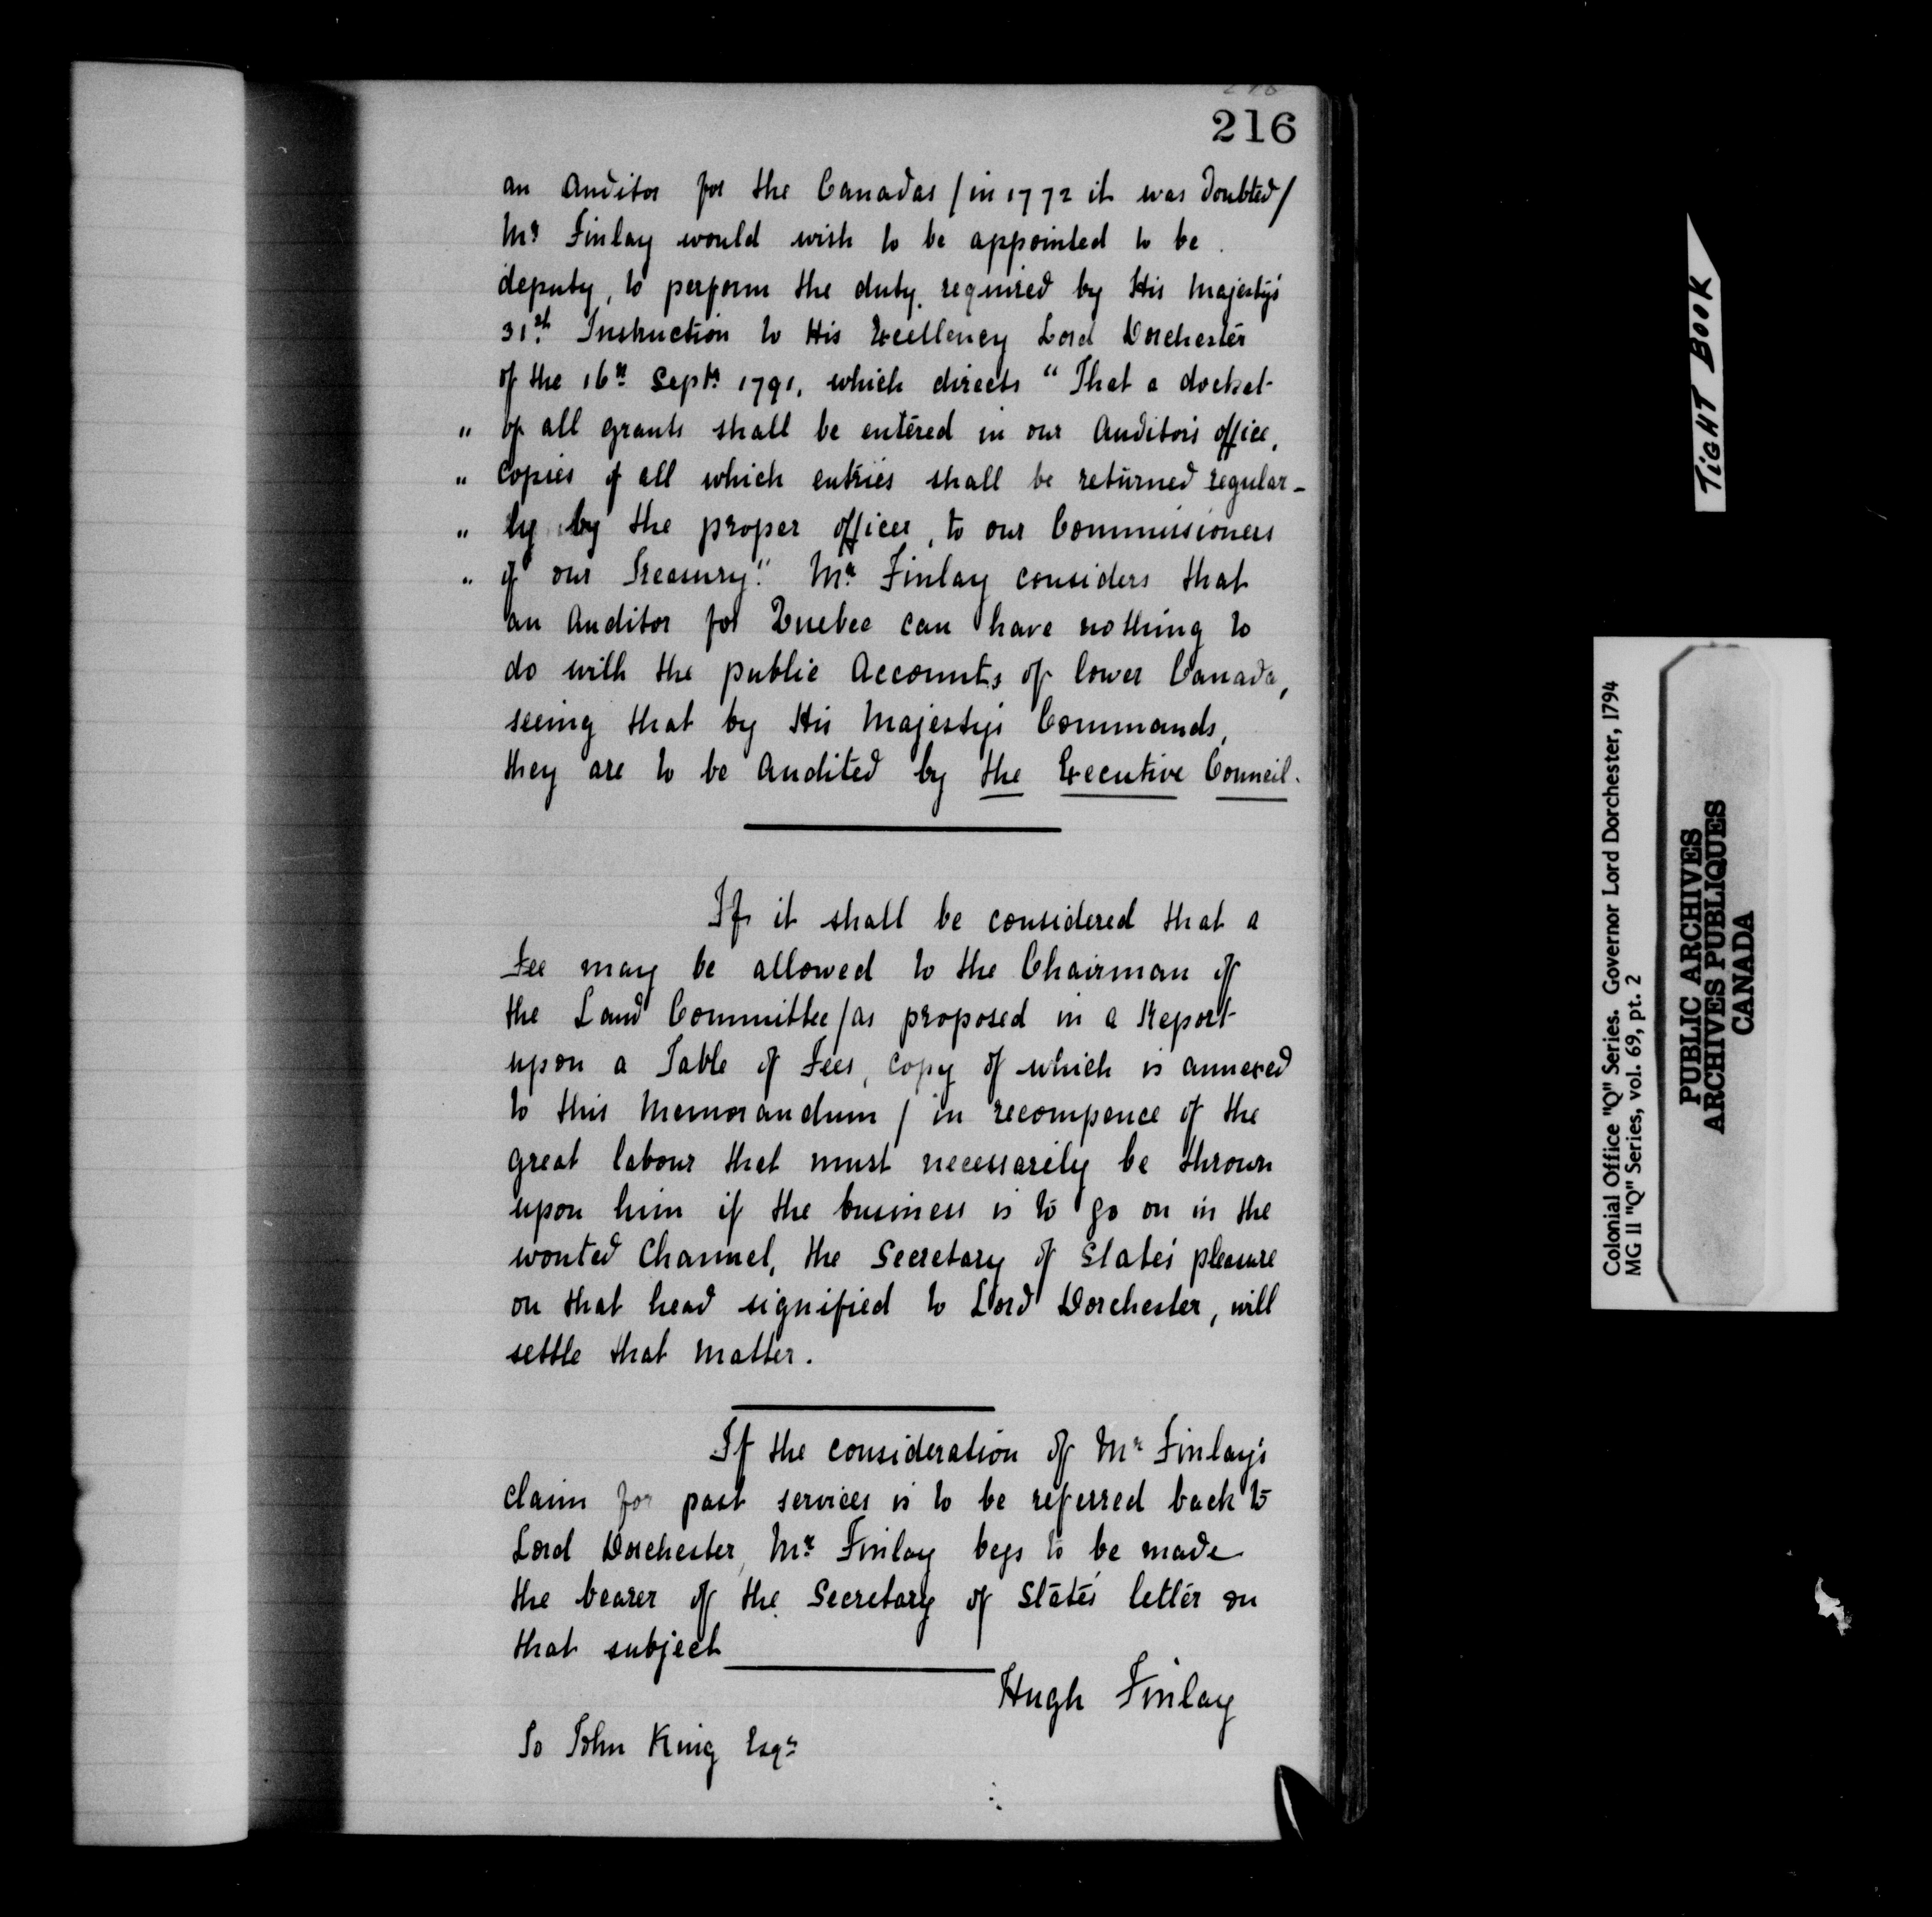 216
an Auditor for the Canadas / in 1772 it was doubted /
Mr Finlay would wish to be appointed to be
deputy, to perform the duty required by His Majesty's
31st Instruction to His Excellency Lord Dorchester
of the 16th Septr 1791, which directs "That a docket
" of all grants shall be entered in our Auditor's office,
" copies of all which entries shall be returned regular-
" ly by the proper officer, to our Commissioners
" of our Treasury." Mr Finlay considers that
an Auditor for Quebec can have nothing to
do with the public Accounts of lower Canada,
seeing that by His Majesty's Commands,
they are to be Audited by the Executive Council.
If it shall be considered that a
Fee may be allowed to the Chairman of
the Land Committee / as proposed in a Report
upon a Table of Fees, copy of which is annexed
to this Memorandum / in recompence of the
great labour that must necessarily be thrown
upon him if the business is to go on in the
wonted Channel, the Secretary of State's pleasure
on that head signified to Lord Dorchester, will
settle that matter.
If the consideration of Mr Finlay's
claim for past services is to be referred back to
Lord Dorchester, Mr Finlay begs to be made
the bearer of the Secretary of State's letter on
that subject
Hugh Finlay
To John King Esqr
TIGHT BOOK
Colonial Office "Q" Series. Governor Lord Dorchester, 1794
MG II "Q" Series, vol. 69, pt. 2
PUBLIC ARCHIVES
ARCHIVES PUBLIQUES
CANADA